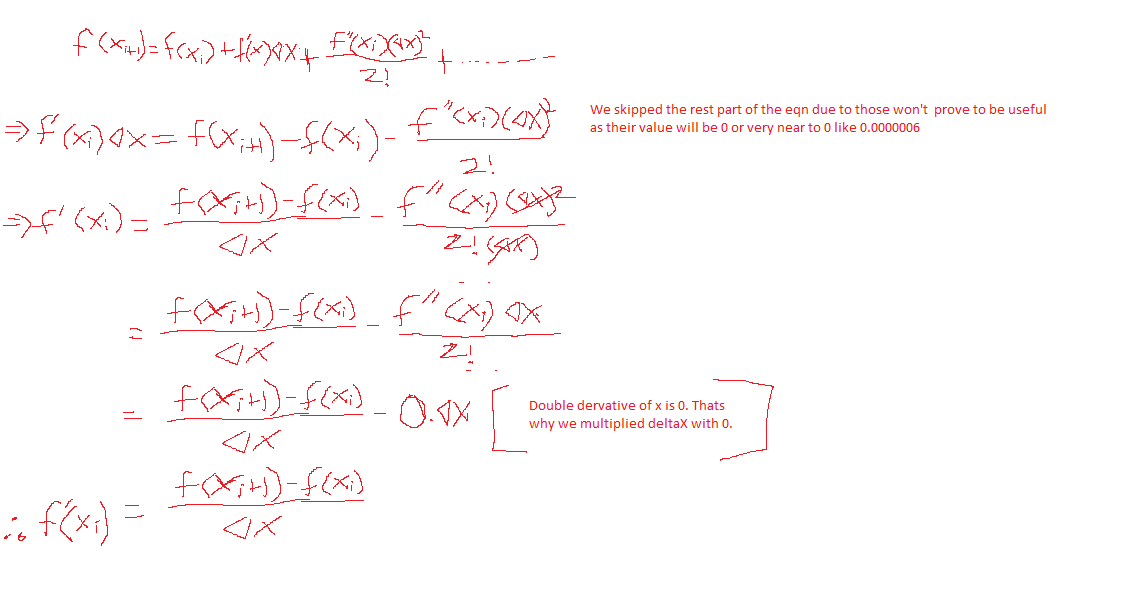 f(xᵢ₊₁) = f(xᵢ) + f'(x)Δx + f''(xᵢ)(Δx)²/2! + ......
⇒ f'(xᵢ)Δx = f(xᵢ₊₁) - f(xᵢ) - f''(xᵢ)(Δx)²/2!
We skipped the rest part of the eqn due to those won't prove to be useful
as their value will be 0 or very near to 0 like 0.0000006
⇒ f'(xᵢ) = (f(xᵢ₊₁) - f(xᵢ))/Δx - f''(xᵢ)(Δx)²/2!(Δx)
= (f(xᵢ₊₁) - f(xᵢ))/Δx - f''(xᵢ)Δx/2!
= (f(xᵢ₊₁) - f(xᵢ))/Δx - 0.Δx [
Double dervative of x is 0. Thats
why we multiplied deltaX with 0. ]
∴ f'(xᵢ) = (f(xᵢ₊₁) - f(xᵢ))/Δx